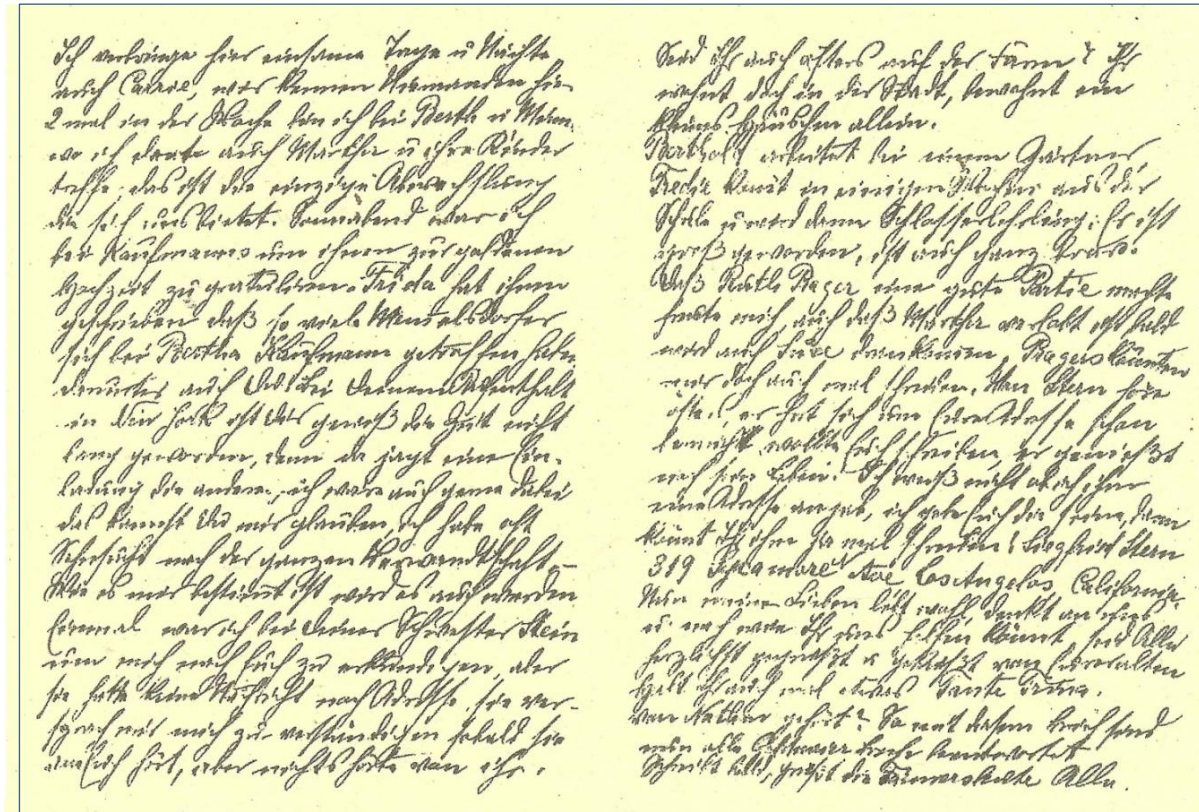 Ich verbringe hier einsame Tage u Nächte
auch Carrie, wir kennen Niemanden hier
2 mal in der Woche bin ich bei Berth u
wo ich dann auch Martha u ihre Kinder
treffe, das ist die einzige Abwechslung
die sich uns bietet. Sonnabend war ich
bei Kaufmanns um ihnen zur goldenen
Hochzeit zu gratulieren. Frida hat ihnen
geschrieben daß so viele
sich bei Bertha Kaufmann getroffen haben
darunter auch Du. Bei Deinem Aufenthalt
in New York ist Dir gewiß die Zeit nicht
lang geworden, denn da jagt eine Ein-
ladung die andere, ich wäre auch gerne dabei
das kannst Du mir glauben, ich habe oft
Sehnsucht nach der ganzen Verwandtschaft
Wie es mir bestimmt ist wird es auch werden
Einmal war ich bei Deiner Schwester Stein
um mich nach Euch zu erkundigen, aber
sie hatte keine Nachricht noch Adresse, sie ver-
sprach mir mich zu verständigen sobald sie
von Euch hört, aber nichts hörte von ihr.
Seid Ihr auch öfters auf der Farm? Ihr
wohnt doch in der Stadt, bewohnt ein
kleines Häuschen allein.
Berthold arbeitet bei einem Gärtner,
Fredie kommt in einigen Wochen aus der
Schule u wird dann Schlosserlehrling. Er ist
groß geworden, ist auch ganz brav.
Daß Ruth Rager eine gute Partie machte
freute mich, auch daß Martha verlobt ist, bald
wird auch drankommen, Ragers könnten
mir doch auch mal schreiben. Von Stern höre
öfters, er hat sich um Eure Adresse schon
bemüht, wollte Euch schreiben, er genießt
noch sein Leben. Ich weiß nicht ob ich ihm
eine Adresse angab, ich gebe Euch die seine, dann
könnt Ihr ihm ja mal schreiben! Siegfried Stern
319 Sycamore Ave Los Angelos, California.
Nun meine Lieben lebt wohl, denkt an uns
u wie Ihr uns helfen könnt, seid Alle
herzlichst gegrüßt u geküßt von Eurer alten
Habt Ihr auch mal etwas Tante
von gehört? So mit diesem Brief sind
nun alle beantwortet
Schreibt bald, grüßt die Alle.